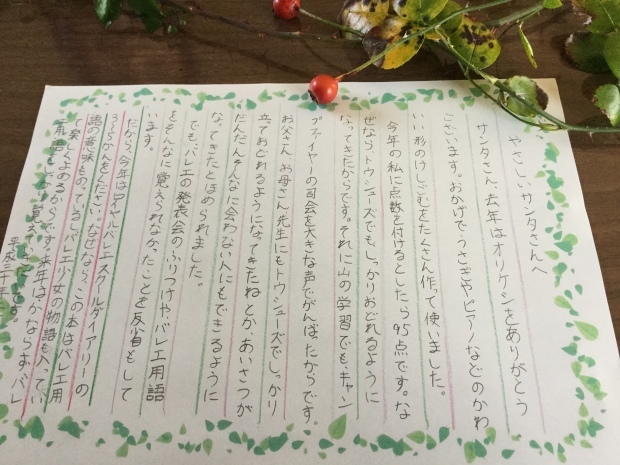 やさしいサンタさんへ
サンタさん、去年はオリケシをありがとう
ございます。おかげでうさぎやピアノなどのかわ
いい形のけしごむをたくさん作って使いました。
今年の私に点数を付けるとしたら95点です。な
ぜなら、トウシューズでも、しっかりおどれるように
なってきたからです。それに山の学習でもキャン
プファイヤーの司会を大きな声でがんばったからです。
お父さん、お母さん、先生にもトウシューズでしっかり
立ておどれるようになってきたねとか、あいさつが
だんだんそんなに会わない人にもできるように
なってきたとほめられました。
でも、バレエの発表会のふりつけや、バレエ用語
をそんなに覚えられなかったことを反省をして
います。
だから、今年はロイヤルバレエスクールダイアリーの
3〜らかんをください。なぜなら、この本はバレエ用
語の意味ものっているし、バレエ少女の物語も入ってい
て楽しくよめるからです。来年はかならず、バレ
エ用語をしっかり覚えたいです。
平成三十年